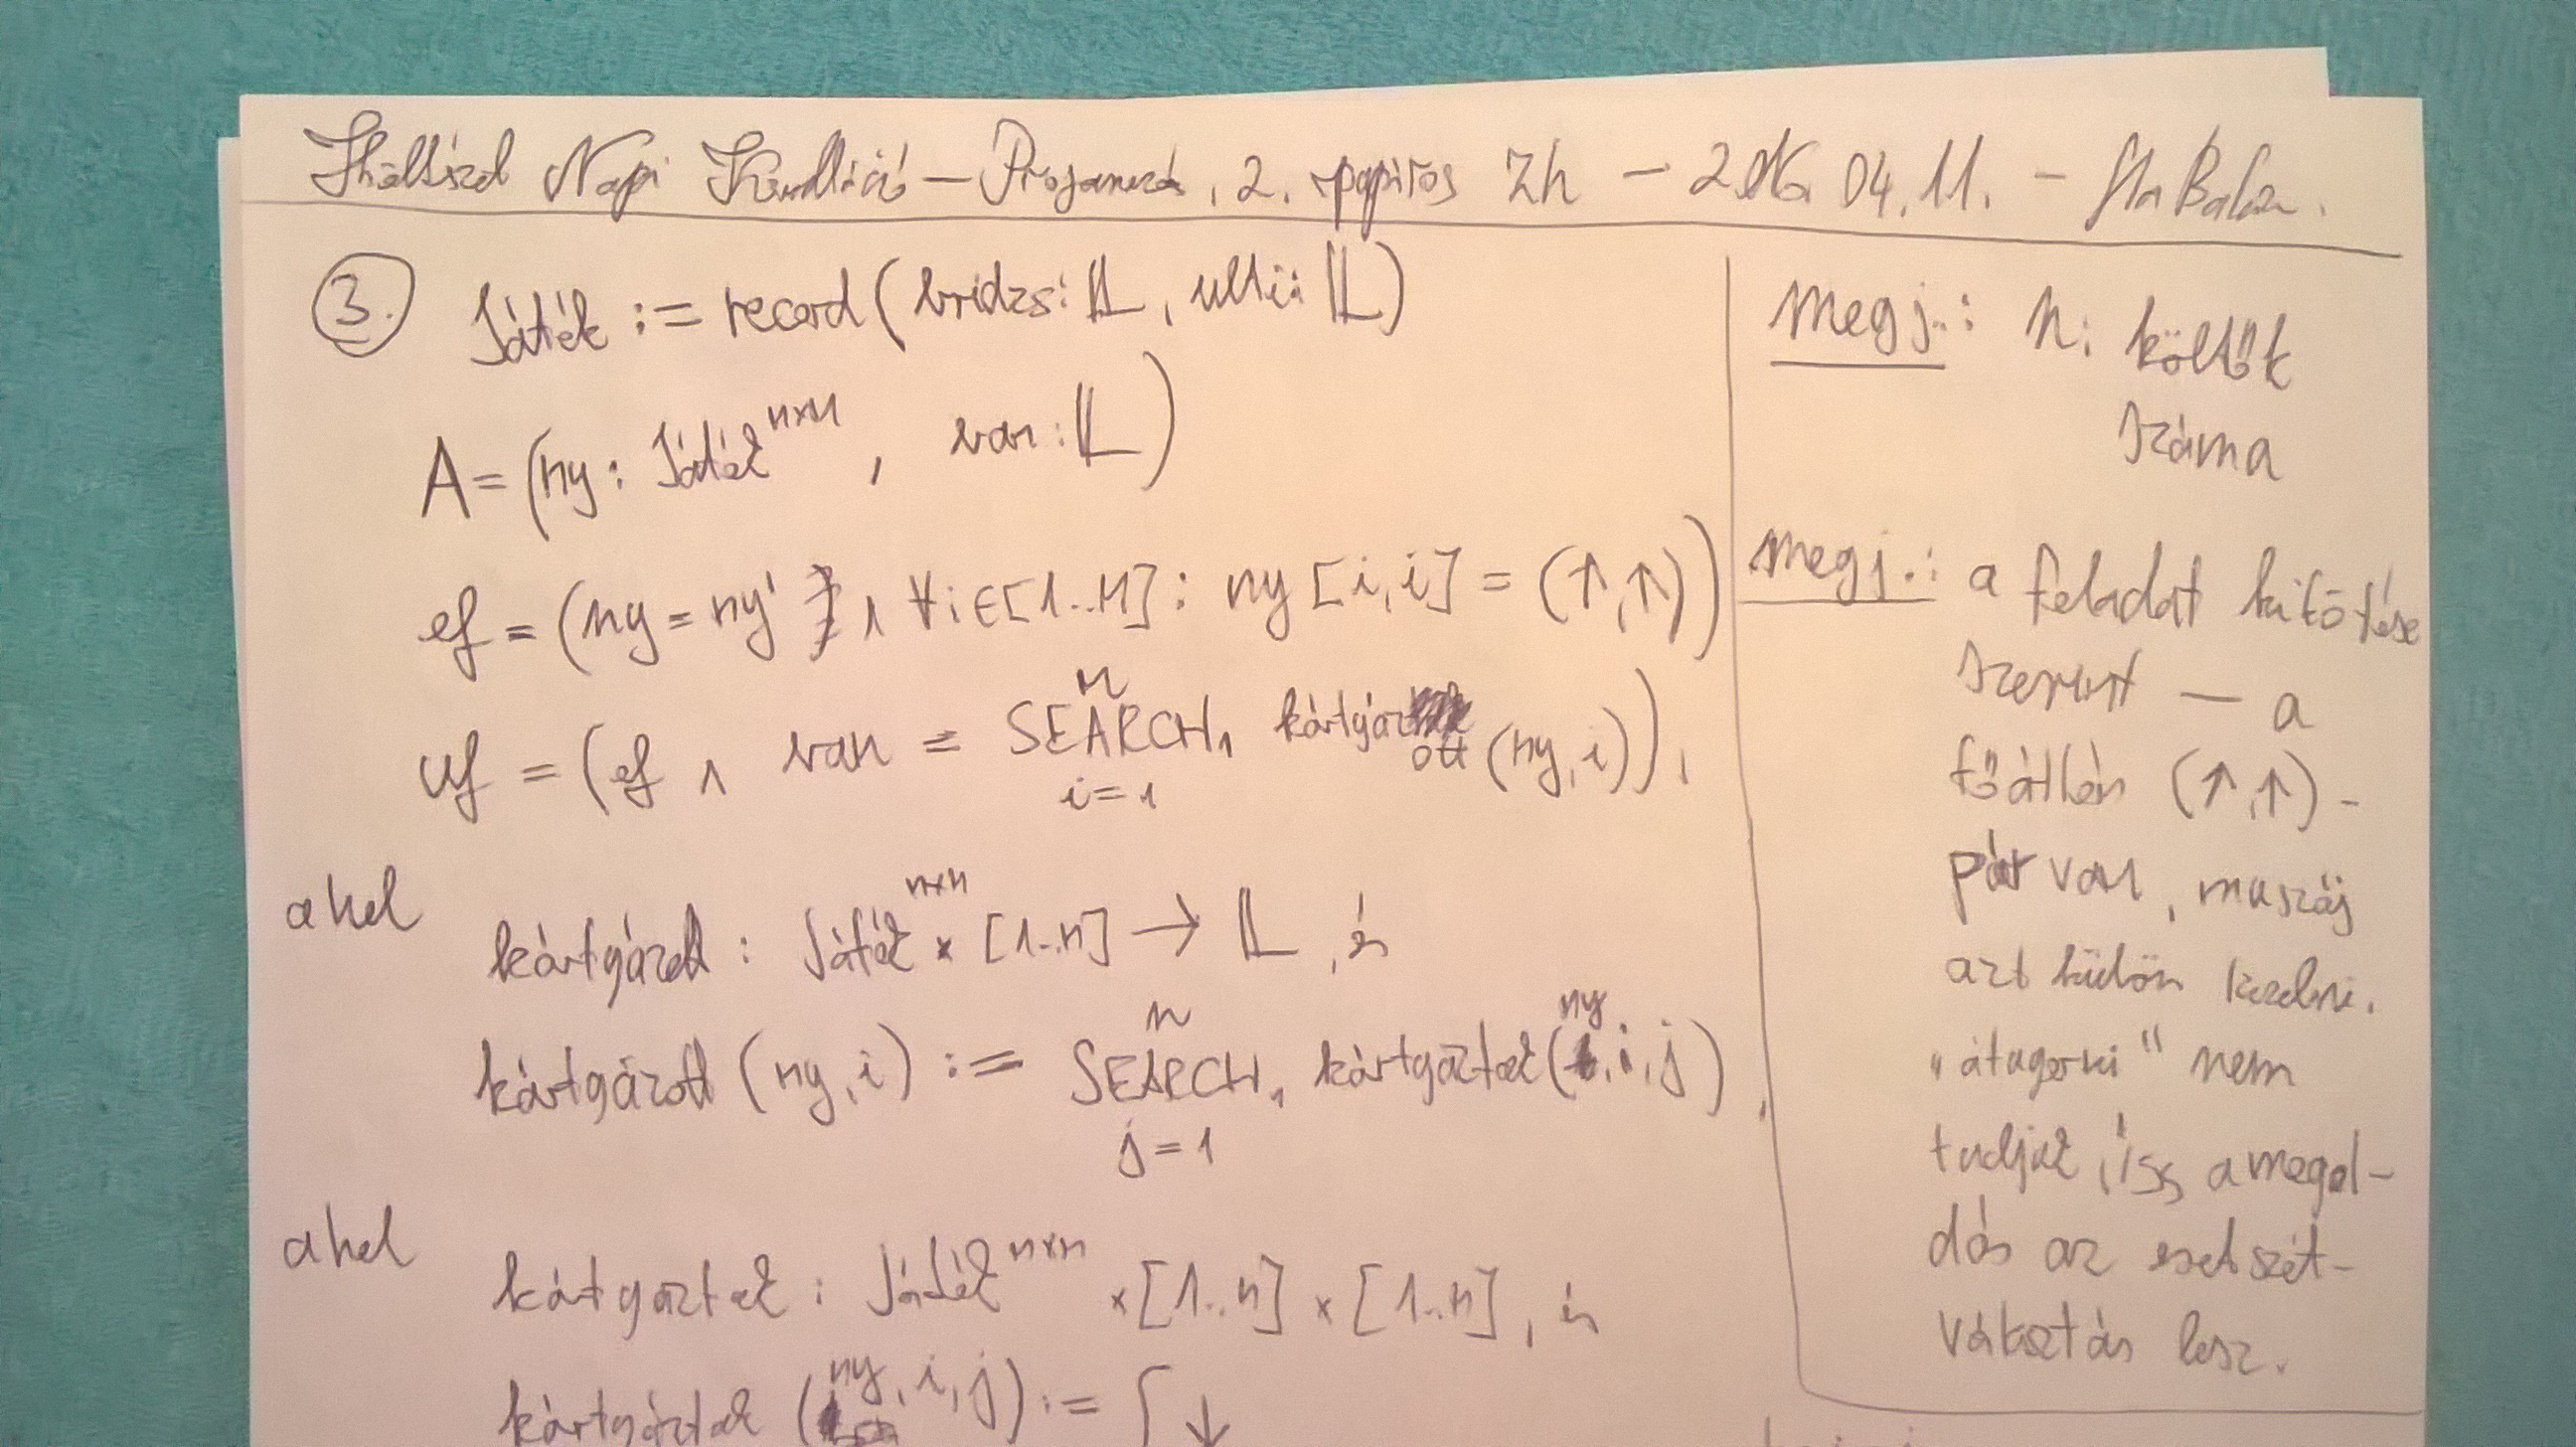 Napi – Progamozás, 2. papíros Zh – 2016. 04. 11. –
③. Játék := record(bridzs: 𝕃, ulti: 𝕃)
A = (ny: Játékⁿˣⁿ, van: 𝕃)
ef = (ny = ny' ∧ ∀i∈[1..n]: ny[i,i] = (↑,↑))
uf = (ef ∧ van =
n
SEARCH₁ kártyázott (ny,i)),
i=1
ahol
kártyázott : Játékⁿˣⁿ × [1..n] → 𝕃, és
n
kártyázott (ny,i) := SEARCH₁ kártyáztak(ny,i,j),
j=1
ahol
kártyáztak : Játékⁿˣⁿ × [1..n] × [1..n], és
kártyáztak (ny,i,j) := { ↓
Megj.: n: költők
száma
Megj.: a feladat kikötése
szerint — a
főátlón (↑,↑)-
pár van, muszáj
azt külön kezelni.
„átugorni" nem
tudjuk, így a megol-
dás az esetszét-
választás lesz.